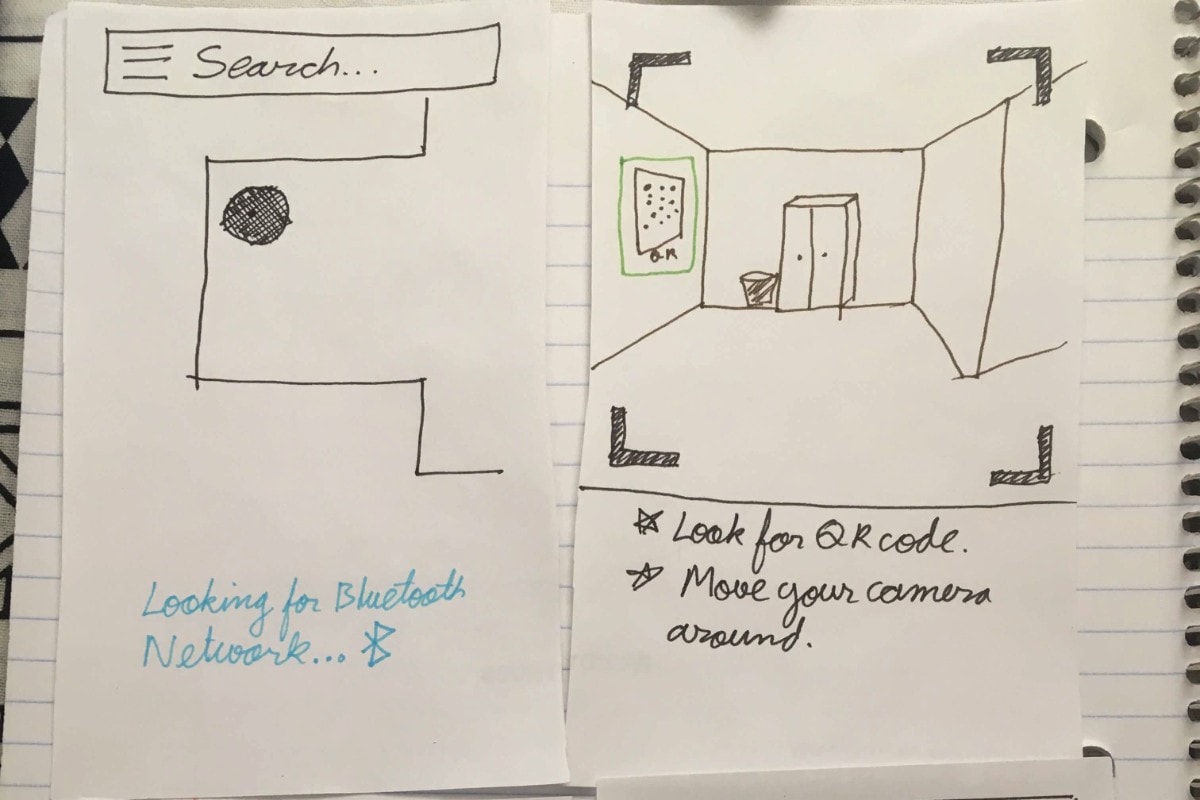 Search...
Looking for Bluetooth
Network...
QR
Look for QR code.
Move your camera
around.